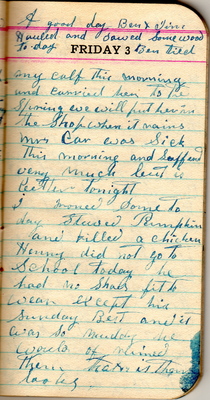 A good day Ben & Jim
Hauled and Sawed Some wood
to-day
FRIDAY 3
Ben tied
any calf this morning
and carried her to the
Spring we will put her in
the Shop when it rains
Mrs Car was Sick
this morning and Sufferd
very much but is
better tonight
I ironed Some to
day Stewed Pumpkin
and killed a chicken
Henry did not go to
School today he
had no Shoes fit to
wear except his
Sunday Best and it
was so muddy he
would of ruined
them that is their
looks